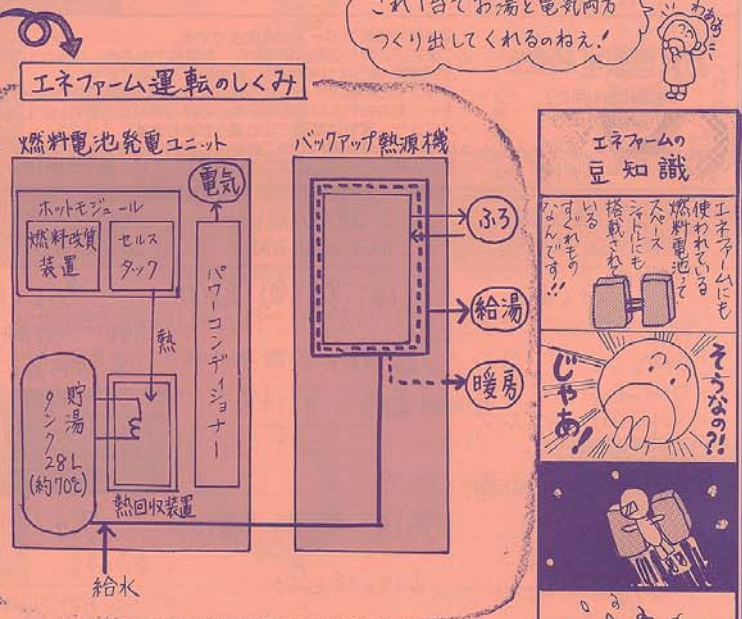 これ1台でお湯と電気両方
つくり出してくれるのねえ!
わぁぁ
エネファーム運転のしくみ
燃料電池発電ユニット
バックアップ熱源機
電気
ホットモジュール
燃料改質
装置
セルス
タック
熱
パワーコンディショナー
貯湯
タンク
28L
(約70℃)
熱回収装置
給水
ふろ
給湯
暖房
エネファームの
豆知識
エネファームにも
使われている
燃料電池って
スペース
シャトルにも
搭載されて
いる
すぐれもの
なんです!!
そうなの?!
じゃあ!